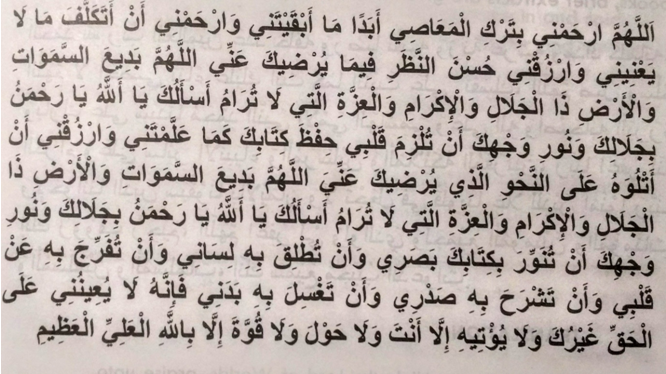 اَللَّهُمَّ ارْحَمْنِي بِتَرْكِ الْمَعَاصِي أَبَدًا مَا أَبْقَيْتَنِي وَارْحَمْنِي أَنْ أَتَكَلَّفَ مَا لَا
يَعْنِينِي وَارْزُقْنِي حُسْنَ النَّظَرِ فِيمَا يُرْضِيكَ عَنِّي اللَّهُمَّ بَدِيعَ السَّمَوَاتِ
وَالْأَرْضِ ذَا الْجَلَالِ وَالْإِكْرَامِ وَالْعِزَّةِ الَّتِي لَا تُرَامُ أَسْأَلُكَ يَا أَللَّهُ يَا رَحْمَنُ
بِجَلَالِكَ وَنُورِ وَجْهِكَ أَنْ تُلْزِمَ قَلْبِي حِفْظَ كِتَابِكَ كَمَا عَلَّمْتَنِي وَارْزُقْنِي أَنْ
أَتْلُوَهُ عَلَى النَّحْوِ الَّذِي يُرْضِيكَ عَنِّيَ اللَّهُمَّ بَدِيعَ السَّمَوَاتِ وَالْأَرْضِ ذَا
الْجَلَالِ وَالْإِكْرَامِ وَالْعِزَّةِ الَّتِي لَا تُرَامُ أَسْأَلُكَ يَا أَللَّهُ يَا رَحْمَنُ بِجَلَالِكَ وَنُورِ
وَجْهِكَ أَنْ تُنَوِّرَ بِكِتَابِكَ بَصَرِي وَأَنْ تُطْلِقَ بِهِ لِسَانِي وَأَنْ تُفَرِّجَ بِهِ عَنْ
قَلْبِي وَأَنْ تَشْرَحَ بِهِ صَدْرِي وَأَنْ تَغْسِلَ بِهِ بَدَنِي فَإِنَّهُ لَا يُعِينُنِي عَلَى
الْحَقِّ غَيْرُكَ وَلَا يُؤْتِيهِ إِلَّا أَنْتَ وَلَا حَوْلَ وَلَا قُوَّةَ إِلَّا بِاللَّهِ الْعَلِيِّ الْعَظِيمِ